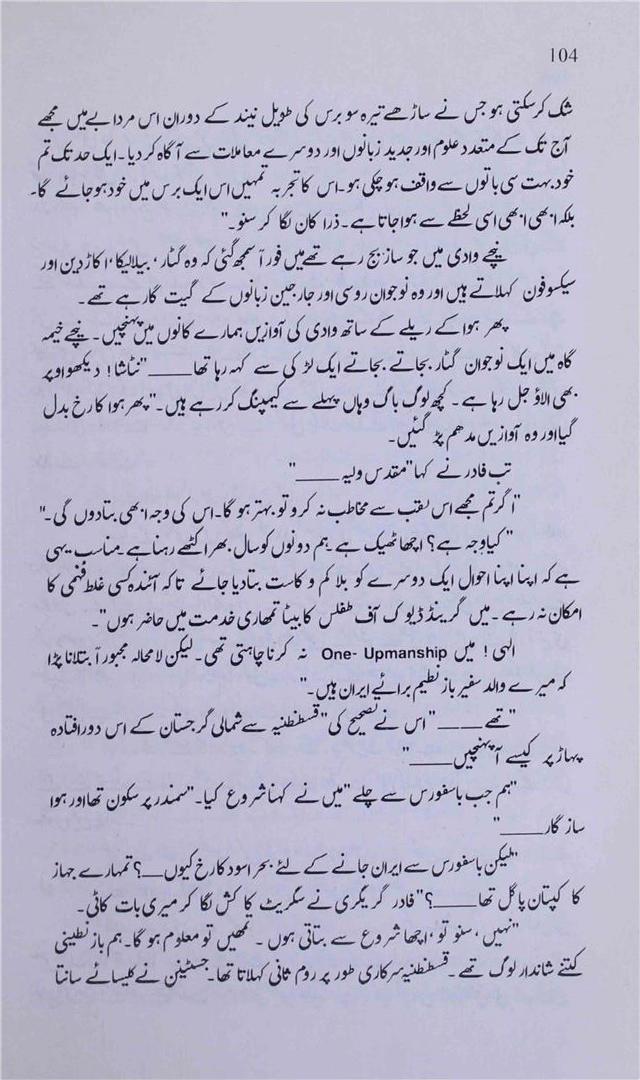 104
شک کرسکتی ہو جس نے ساڑھے تیرہ سو برس کی طویل نیند کے دوران اس مردابے میں مجھے
آج تک کے متعدد علوم اور جدید زبانوں اور دوسرے معاملات سے آگاہ کر دیا۔ ایک حد تک تم
خود بہت سی باتوں سے واقف ہو چکی ہو۔ اس کا تجربہ تمہیں اس ایک برس میں خود ہو جائے گا۔
بلکہ ابھی ابھی اسی لحظے سے ہوا جاتا ہے۔ ذرا کان لگا کر سنو۔"
نیچے وادی میں جو ساز بج رہے تھے میں فوراً سمجھ گئی کہ وہ گٹار، بیلالیکا، اکارڈین اور
سیکسوفون کہلاتے ہیں اور وہ نوجوان روسی اور جارجین زبانوں کے گیت گا رہے تھے۔
پھر ہوا کے ریلے کے ساتھ وادی کی آوازیں ہمارے کانوں میں پہنچیں۔ نیچے خیمہ
گاہ میں ایک نوجوان گٹار بجاتے بجاتے ایک لڑکی سے کہہ رہا تھا____"نتاشا! دیکھو اوپر
بھی الاؤ جل رہا ہے۔ کچھ لوگ باگ وہاں پہلے سے کیمپنگ کر رہے ہیں۔" پھر ہوا کا رخ بدل
گیا اور وہ آوازیں مدھم پڑ گئیں۔
تب فادر نے کہا "مقدس ولیہ____"
"اگر تم مجھے اس لقب سے مخاطب نہ کرو تو بہتر ہوگا۔ اس کی وجہ ابھی بتا دوں گی۔"
"کیا وجہ ہے؟ اچھا ٹھیک ہے ہم دونوں کو سال بھر اکٹھے رہنا ہے مناسب یہی
ہے کہ اپنا اپنا احوال ایک دوسرے کو بلا کم و کاست بتا دیا جائے تاکہ آئندہ کسی غلط فہمی کا
امکان نہ رہے۔ میں گرینڈ ڈیوک آف طفلس کا بیٹا تمھاری خدمت میں حاضر ہوں"۔
الٰہی! میں One- Upmanship نہ کرنا چاہتی تھی۔ لیکن لامحالہ مجبوراً بتلانا پڑا
کہ میرے والد سفیر بازنطیم برائے ایران ہیں۔"
"تھے____" اس نے تصحیح کی "قسطنطنیہ سے شمالی گرجستان کے اس دور افتادہ
پہاڑ پر کیسے آ پہنچیں____"
"ہم جب باسفورس سے چلے" میں نے کہنا شروع کیا۔ "سمندر پر سکون تھا اور ہوا
ساز گار____"
"لیکن باسفورس سے ایران جانے کے لئے بحر اسود کا رخ کیوں__؟ تمہارے جہاز
کا کپتان پاگل تھا____؟" فادر گریگری نے سگریٹ کا کش لگا کر میری بات کاٹی۔
"نہیں، سنو تو، اچھا شروع سے بتاتی ہوں۔ تمھیں تو معلوم ہوگا۔ ہم بازنطینی
کتنے شاندار لوگ تھے۔ قسطنطنیہ سرکاری طور پر روم ثانی کہلاتا تھا۔ جسٹینن نے کلیسائے سانتا